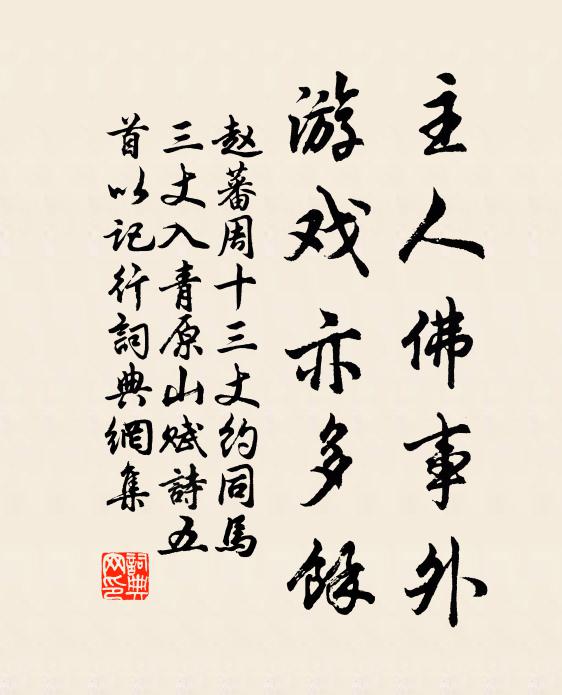 主人佛事外
游戏亦多餘
赵蕃周十三丈約同馬
三丈入青原山赋詩五
首以記行詞典網集
詞典
网印